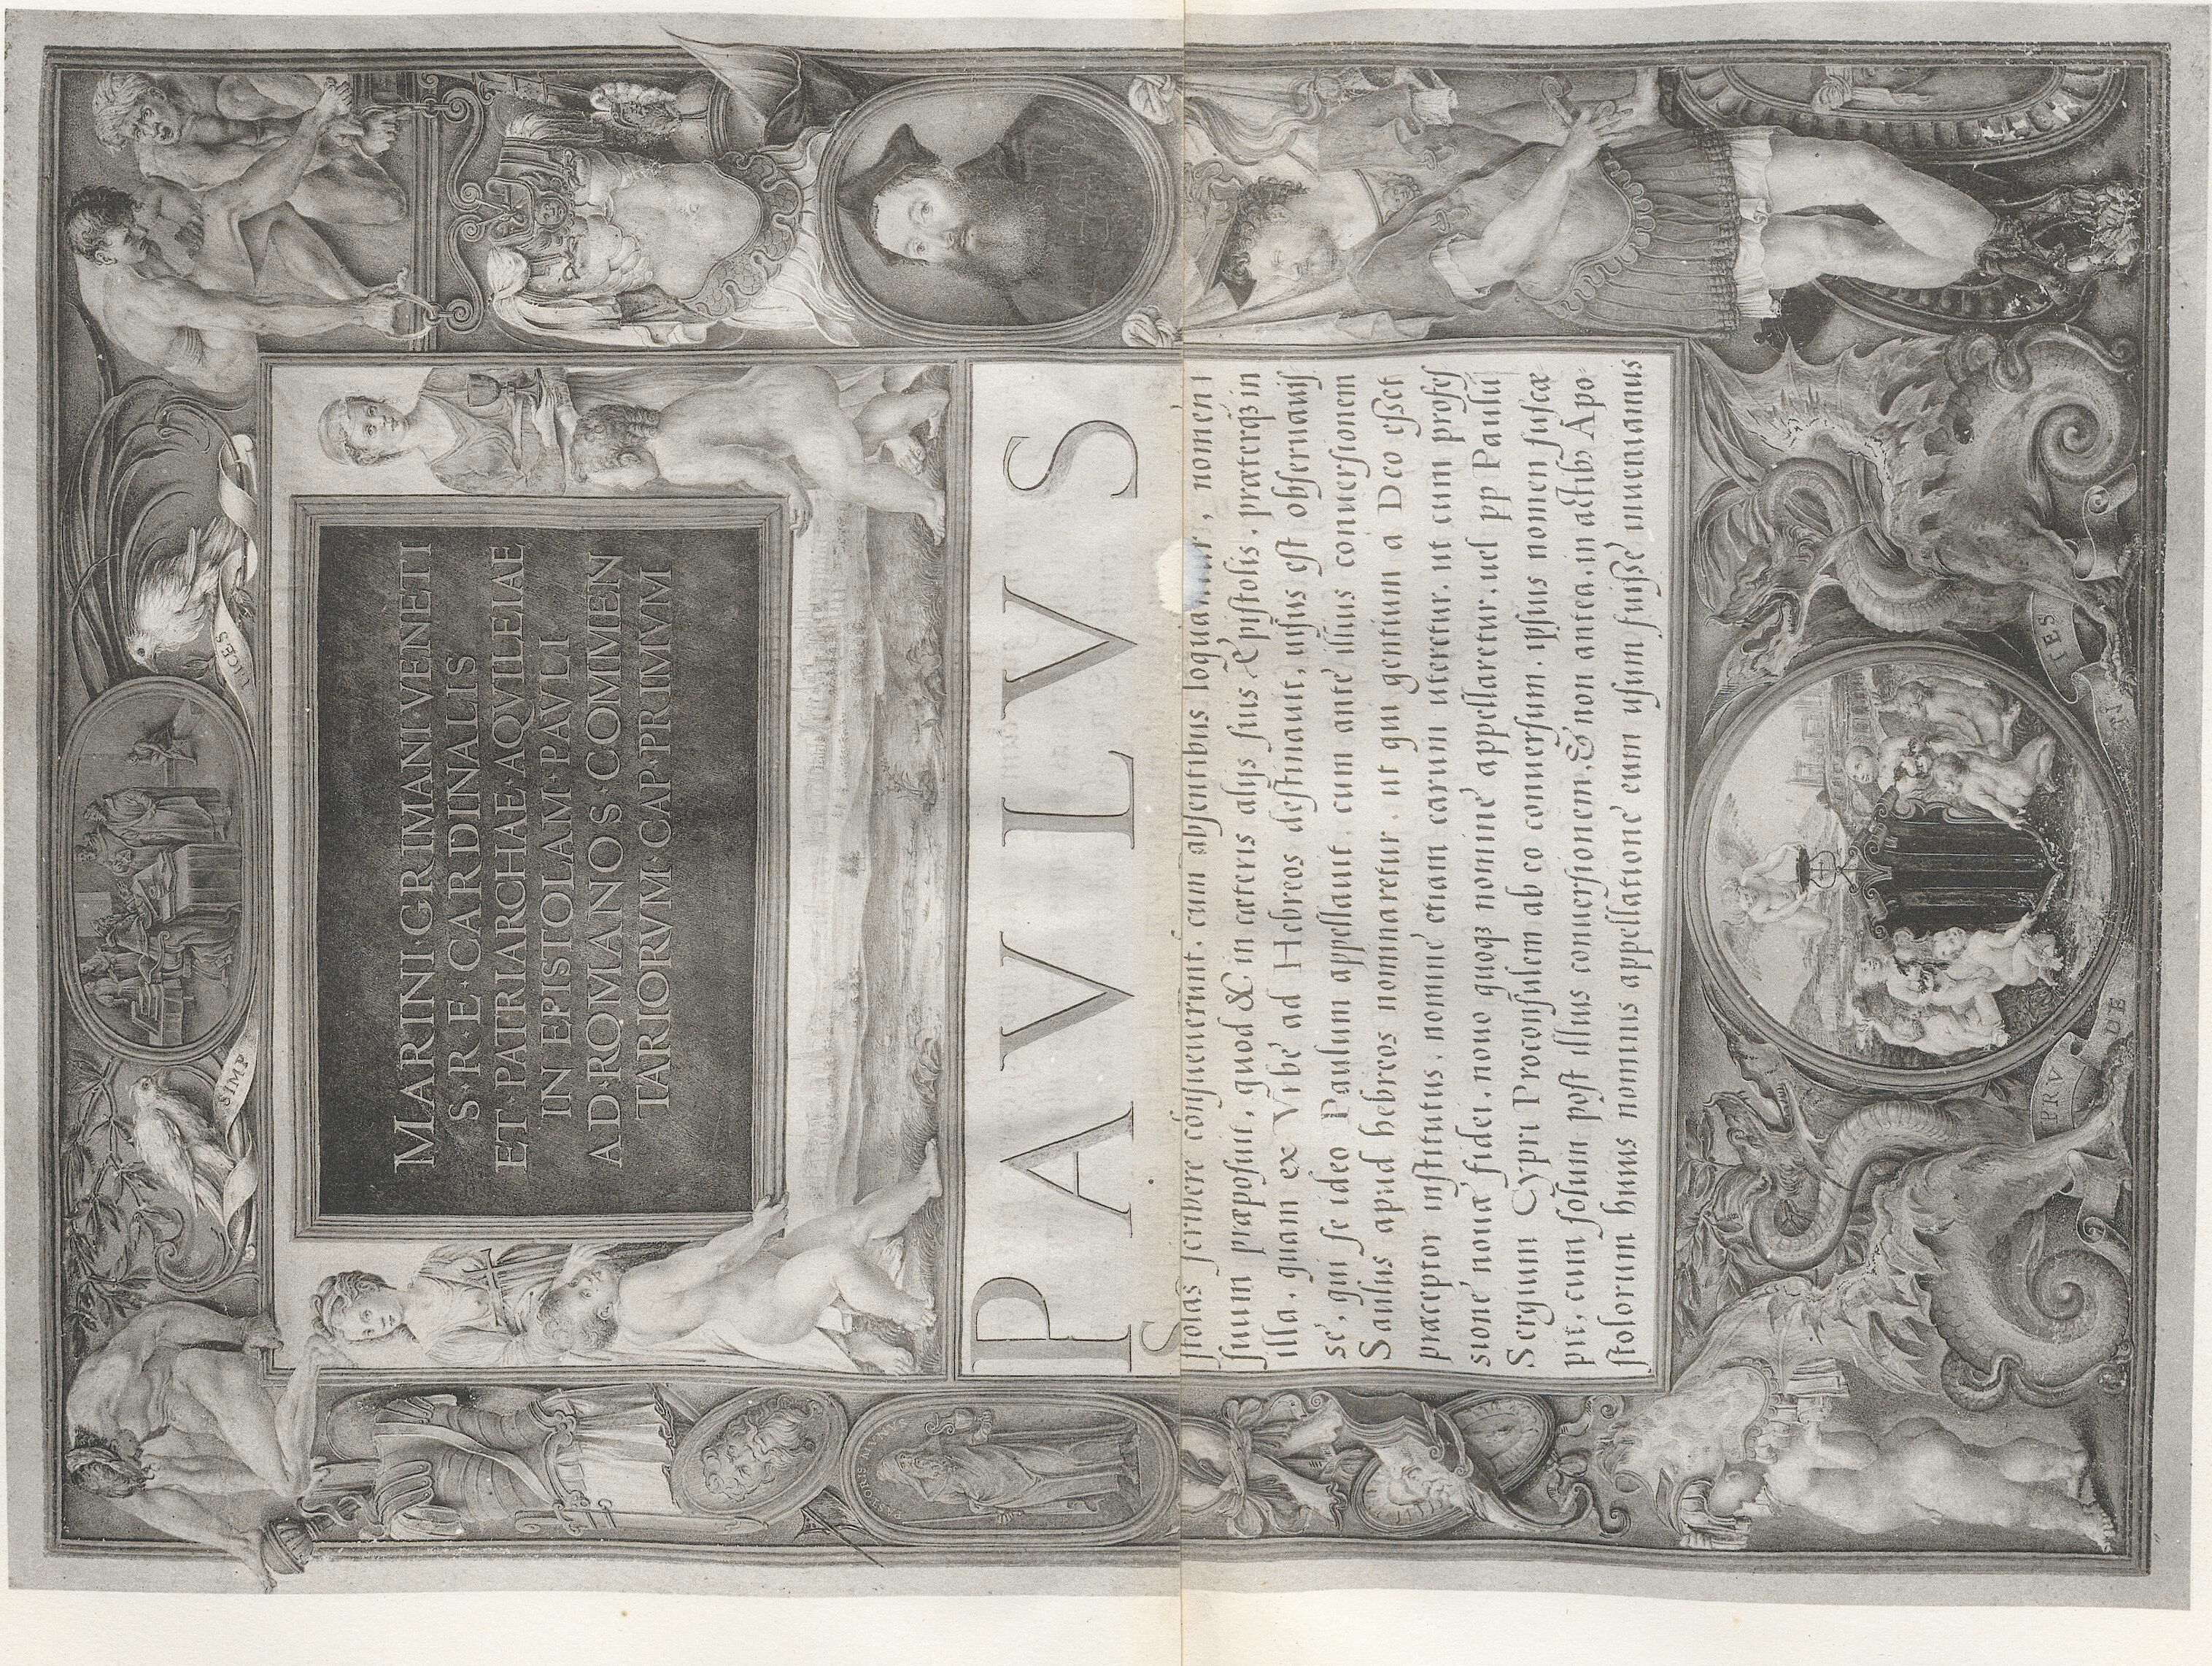 SIMP LICES
MARINI·GRIMANI·VENETI
S·R·E·CARDINALIS
ET·PATRIARCHAE·AQVILEIAE
IN EPISTOLAM·PAVLI
AD·ROMANOS·COMMEN
TARIORVM·CAP·PRIMVM
PAVLVS
PASTORIS
S
stolas scribere consueuerunt. cum absentibus loquantur, nomen
suum præposuit, quod & in cæteris alijs suis Epistolis, præterq3 in
illa, quam ex Vrbe ad Hebreos destinauit, uisus est obseruauis
se, qui se ideo Paulum appellauit, cum ante illius conuersionem
Saulus apud hebreos nominaretur, ut qui gentium a Deo esset
præceptor institutus, nomine etiam earum uteretur. ut cum profes
sione noua fidei, nouo quoq3 nomine appellaretur. uel pp Paulū
Sergium Cypri Proconsulem ab eo conuersum. ipsius nomen suscæ
pit, cum solum post illius conuersionem, & non antea, in actib. Apo
stolorum huius nominis appellatione eum usum fuisse inueniamus
PRV DE N TES